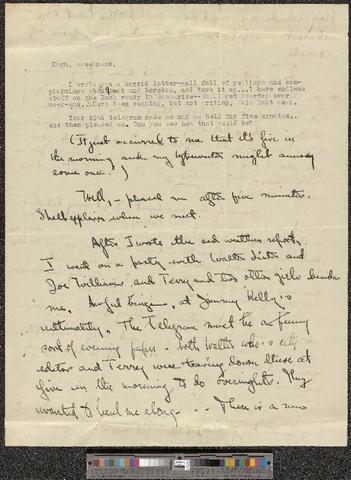 Hugh, sweetness,
I wrote you a horrid letter--all full of yellings and com-
plainings about heat and boredom, and tore it up...I have endless
stuff on the Book ready to
week-end. Have been reading, but not writing, this last week.
Your kind telegram made me mad as hell for five minutes..
and then pleased me. Can you see how that could be?
(It just occurred to me that it's five in
the morning and my typewriter might annoy
some one.)
Well, - pleased me after five minutes.
Shall explain when we meet.
After I wrote the sad written report,
I went on a party with Walter Lister and
Joe Williams and Terry and two other girls besides
me. Awful binge -, at Jimmy Kelly's
ultimately. The Telegram must be a funny
sort of evening paper - both Walter who's city
editor and Terry were tearing down there at
five in the morning to do overnights. They
wanted to haul me along - .. There is a new